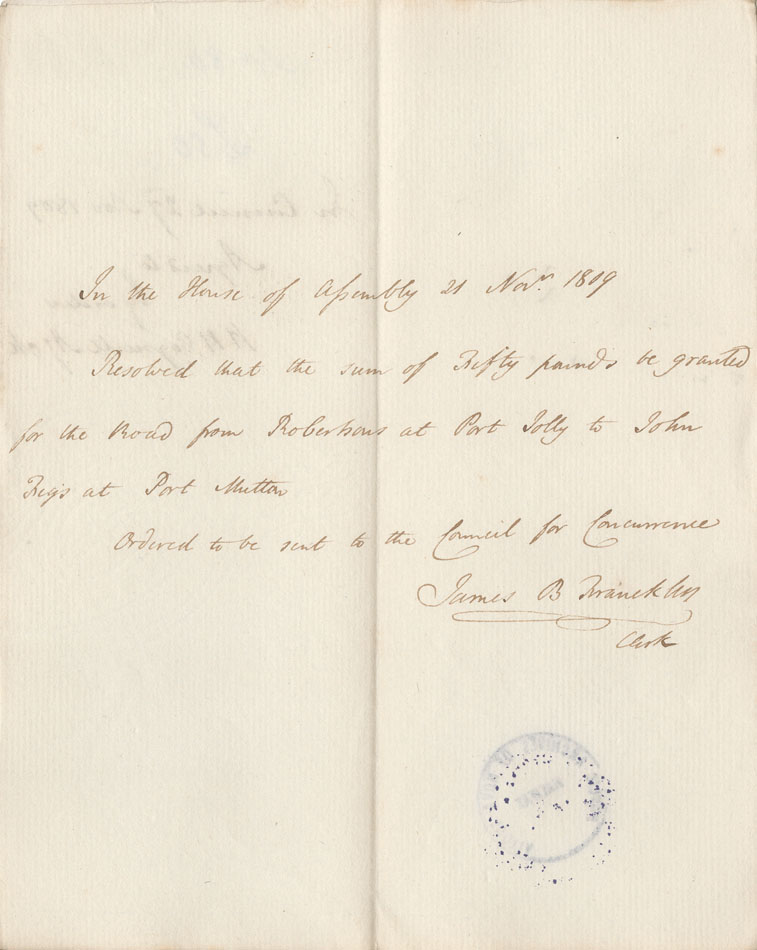 In the House of Assembly 21 Novr. 1809
Resolved that the sum of Fifty pounds be granted
for the Road from Robertsons at Port Jolly to John
at Port Mutton
Ordered to be sent to the Council for Concurrence
James B Francklin
Clerk